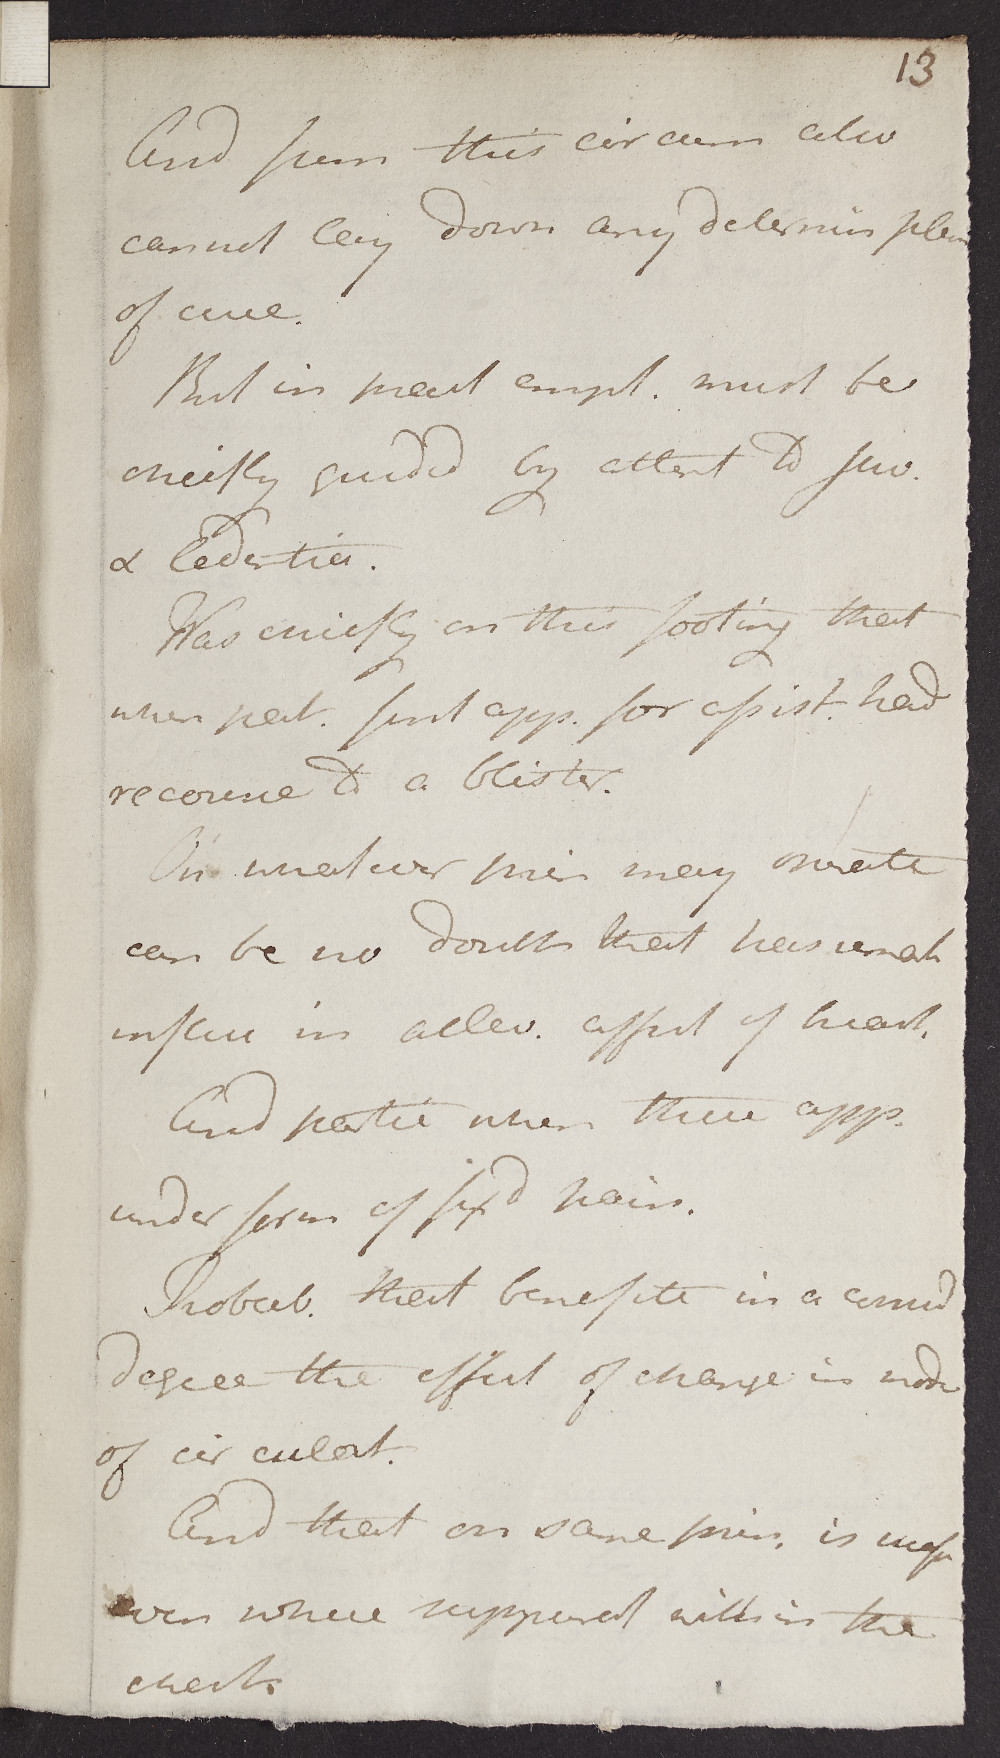 13
And from this circum also
cannot lay down any determin plan
of cure.
But in meat empl. must be
chiefly guided by attent to juv.
& ledentia.
Was chiefly on this footing that
when pat. first app. for assist. had
recourse to a blister.
On whatever prin may operate
can be no doubt that has great
influe in allev. affect of breast.
And partic when these app.
under form of fix'd pain.
Probab. that benefite in a consid
degree the effect of change in mode
of circulat.
And that on same prin. is usefu
even where suppurat within the
chest.